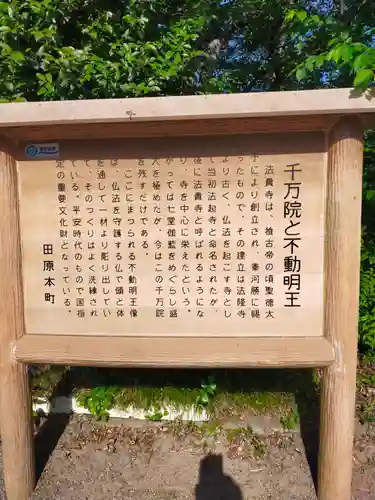 千万院と不動明王
法貴寺は、推古帝の頃聖徳太
子により創立され、秦河勝に賜
ったもので、その建立は法隆寺
より古く、仏法を起こす寺とし
て当初法起寺と命名されたが、
後に法貴寺と呼ばれるようにな
り、寺を中心に栄えたという。
かつては七堂伽藍をめぐらし盛
大を極めたが、今はこの千万院
を残すだけである。
ここにまつられる不動明王像
は、仏法を守護する仏で頭と体
を通して一材より彫り出してい
て、そのつくりはよく洗練され
ている。平安時代のもので国指
定の重要文化財となっている。
田原本町